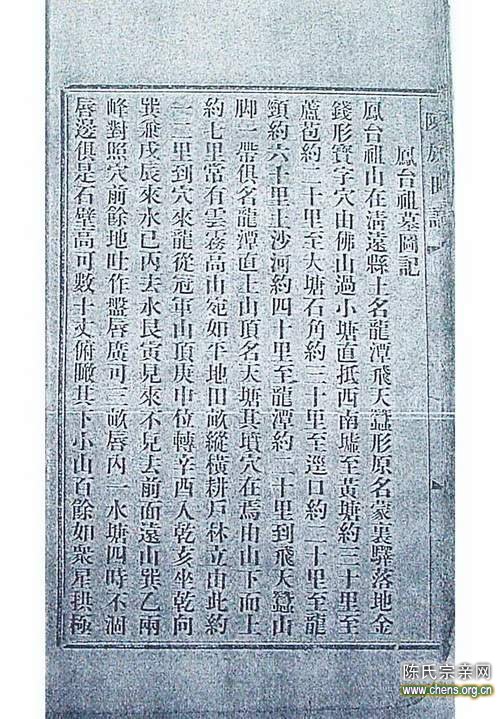 鳳台祖墓圖記
鳳台祖山在淸遠縣上名龍潭飛天蠶形原名蒙裏驛落地金
錢形寶字穴山佛山過小塘直抵西南墟至黃塘約三十里至
蘆苞約二十里至大塘石角約三十里至逕口約二十里至龍
頸約六十里上沙河約四十里至龍潭約二十里到飛天蠶山
脚一帶俱名龍潭直上山頂名天塘其墳穴在焉由山下而上
約七里常有雲霧高山宛如平地田畝縱橫耕戶林立由此約
一二里到穴來龍從冠軍山頂庚申位轉辛酉入乾亥坐乾向
巽兼戊辰來水巳丙去水艮寅見來不見去前面遠山巽乙兩
峰對照穴前餘地吐作盤唇廣可三畝唇內一水塘四時不涸
唇邊俱是石壁高可數十丈俯瞰其下小山百餘如衆星拱極
陈氏宗亲网
www.chens.org.cn